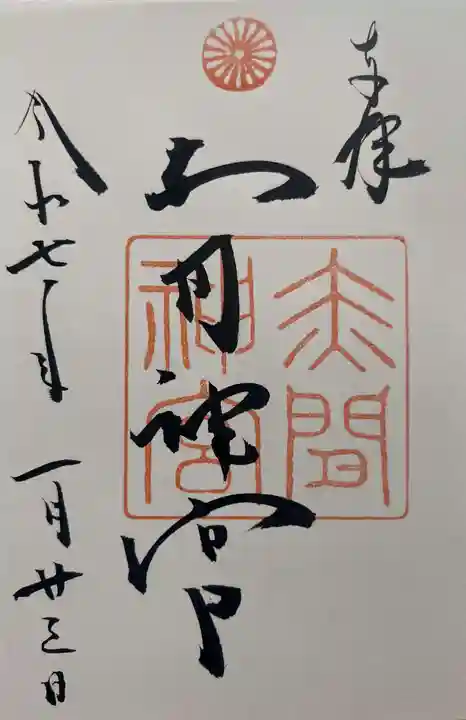 奉拝
赤間神宮
赤間神宮
令和七年
一月廿三日